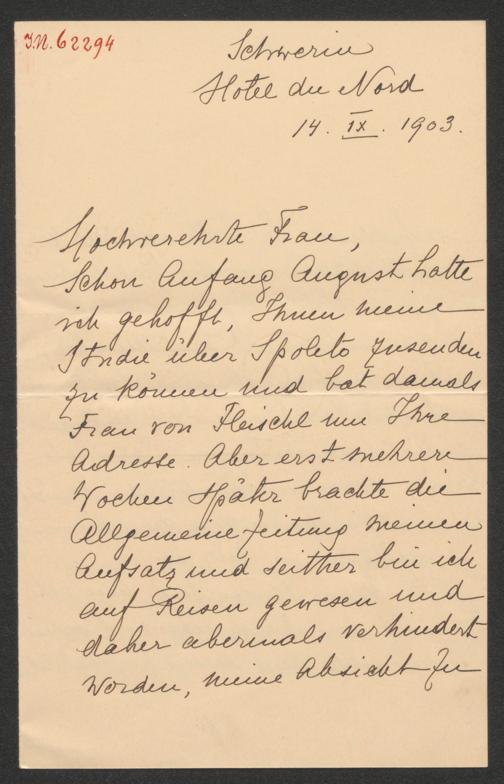 I.N. 62294
Schwerin
Hotel du Nord
14. IX. 1903.
Hochverehrte Frau,
Schon Anfang August hatte
ich gehofft, Ihnen meine
Studie über Spoleto zusenden
zu können und bat damals
Frau von Fleischl um Ihre
Adresse. Aber erst mehrere
Wochen später brachte die
Allgemeine Zeitung meinen
Aufsatz und seither bin ich
auf Reisen gewesen und
daher abermals verhindert
worden, meine Absicht zu